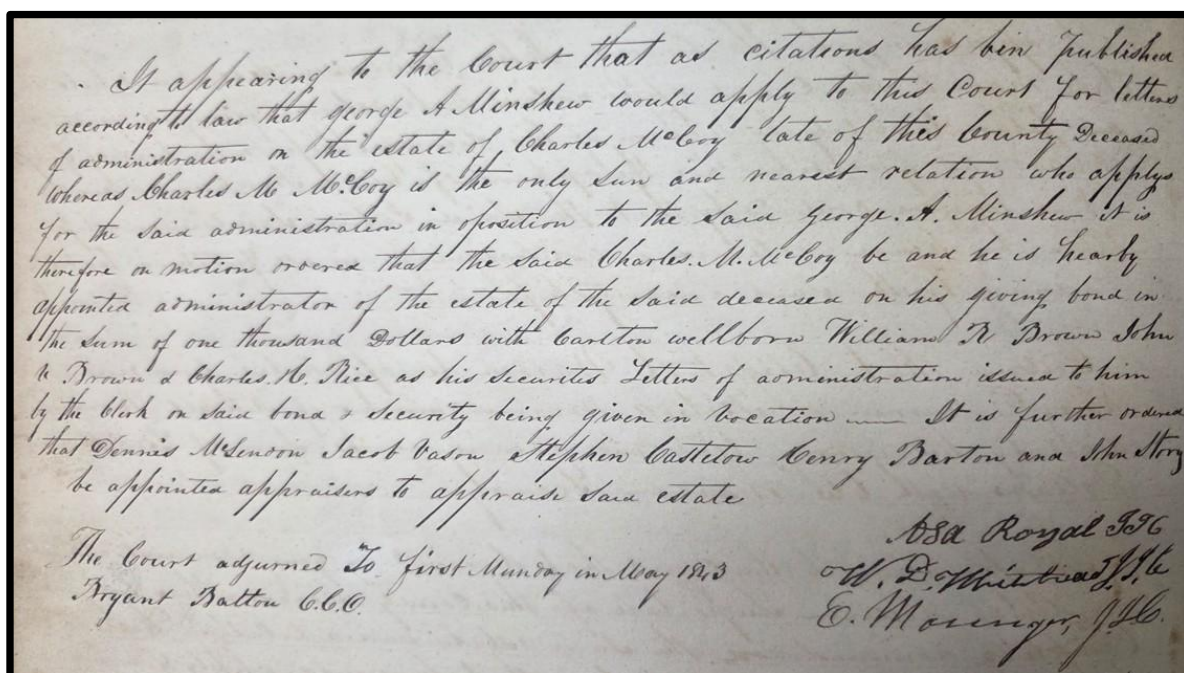 It appearing to the Court that as citations has bin published
according to law that george A Minshew would apply to this Court for letters
of administration on the estate of Charles McCoy late of this County Deceased
whereas Charles M McCoy is the only Sun and nearest relation who applys
for the said administration in oposition to the said George. A. Minshew it is
therefore on motion ordered that the said Charles. M. McCoy be and he is hearby
appointed administrator of the estate of the said deceased on his giving bond in
the sum of one thousand Dollars with Carlton wellborn William R Brown John
Brown & Charles. H. Rice as his securites Letters of administration issued to him
by the Clerk on said bond & security being given in vocation It is further ordered
that Dennis McLendon Jacob Vason Stephen Castelow Henry Barton and John Story
be appointed appraisers to appraise said estate
Asa Royal
The Court adjourned To first Munday in May 1843
W. D. Whitehead
Bryant Batton C.C.O.
E. Mounger, J.I.C.